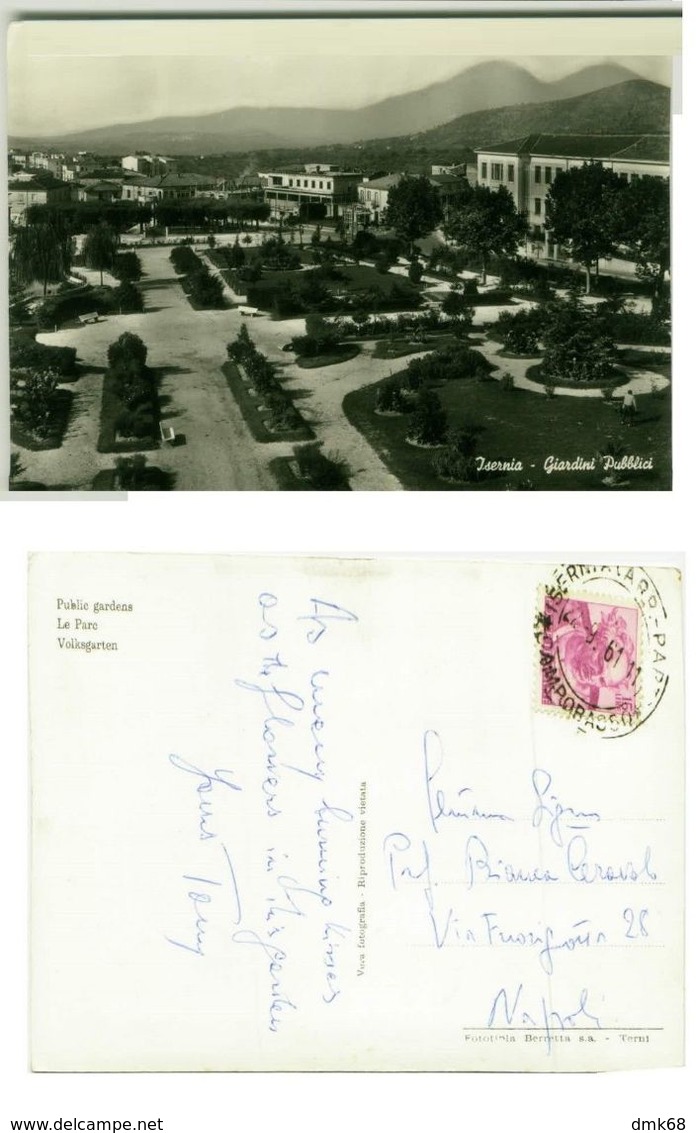 Isernia - Giardini Pubblici
Public gardens
Le Parc
Volksgarten
As many burning kisses
as the flowers in this garden
Yours Tony
Vera fotografia - Riproduzione vietata
61.11
CAMPOBASSO
Prof. Bianca
Via 28
Napoli
Fototipia Berretta s.a. - Terni
www.delcampe.net
dmk68